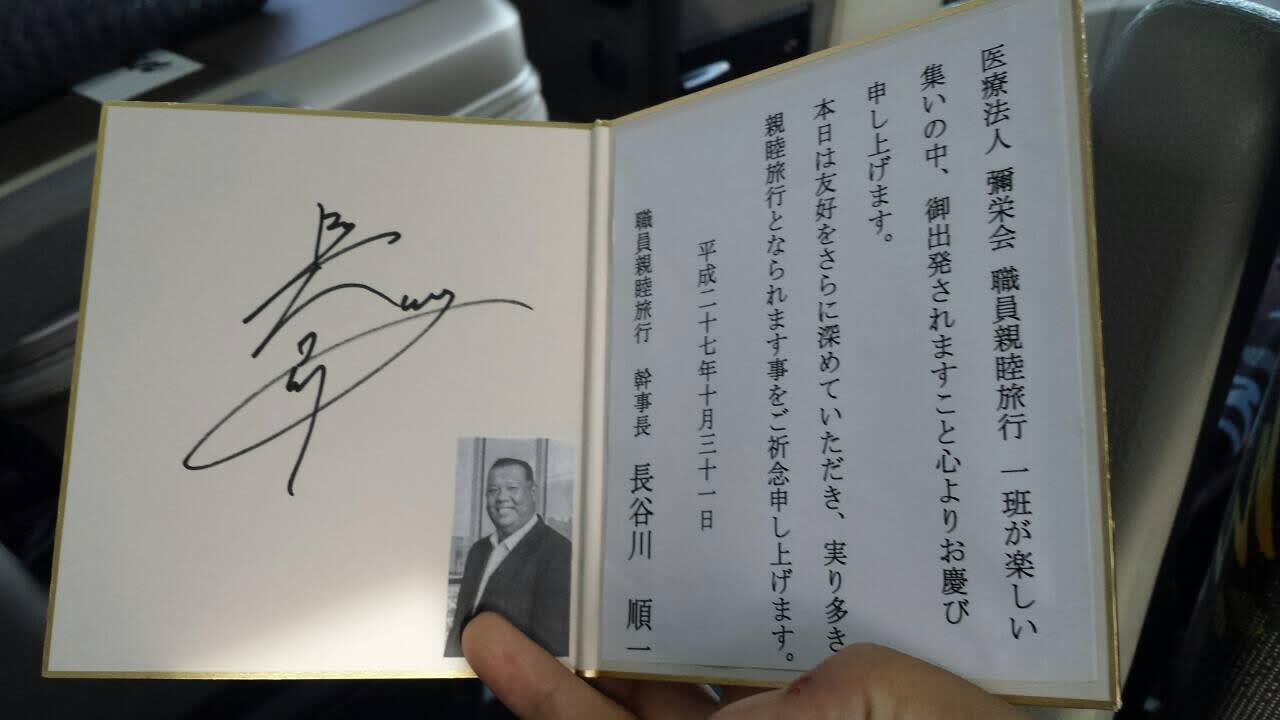 医療法人 彌栄会 職員親睦旅行 一班が楽しい
集いの中、御出発されますこと心よりお慶び
申し上げます。
本日は友好をさらに深めていただき、実り多き
親睦旅行となられます事をご祈念申し上げます。
平成二十七年十月三十一日
職員親睦旅行 幹事長 長谷川 順一